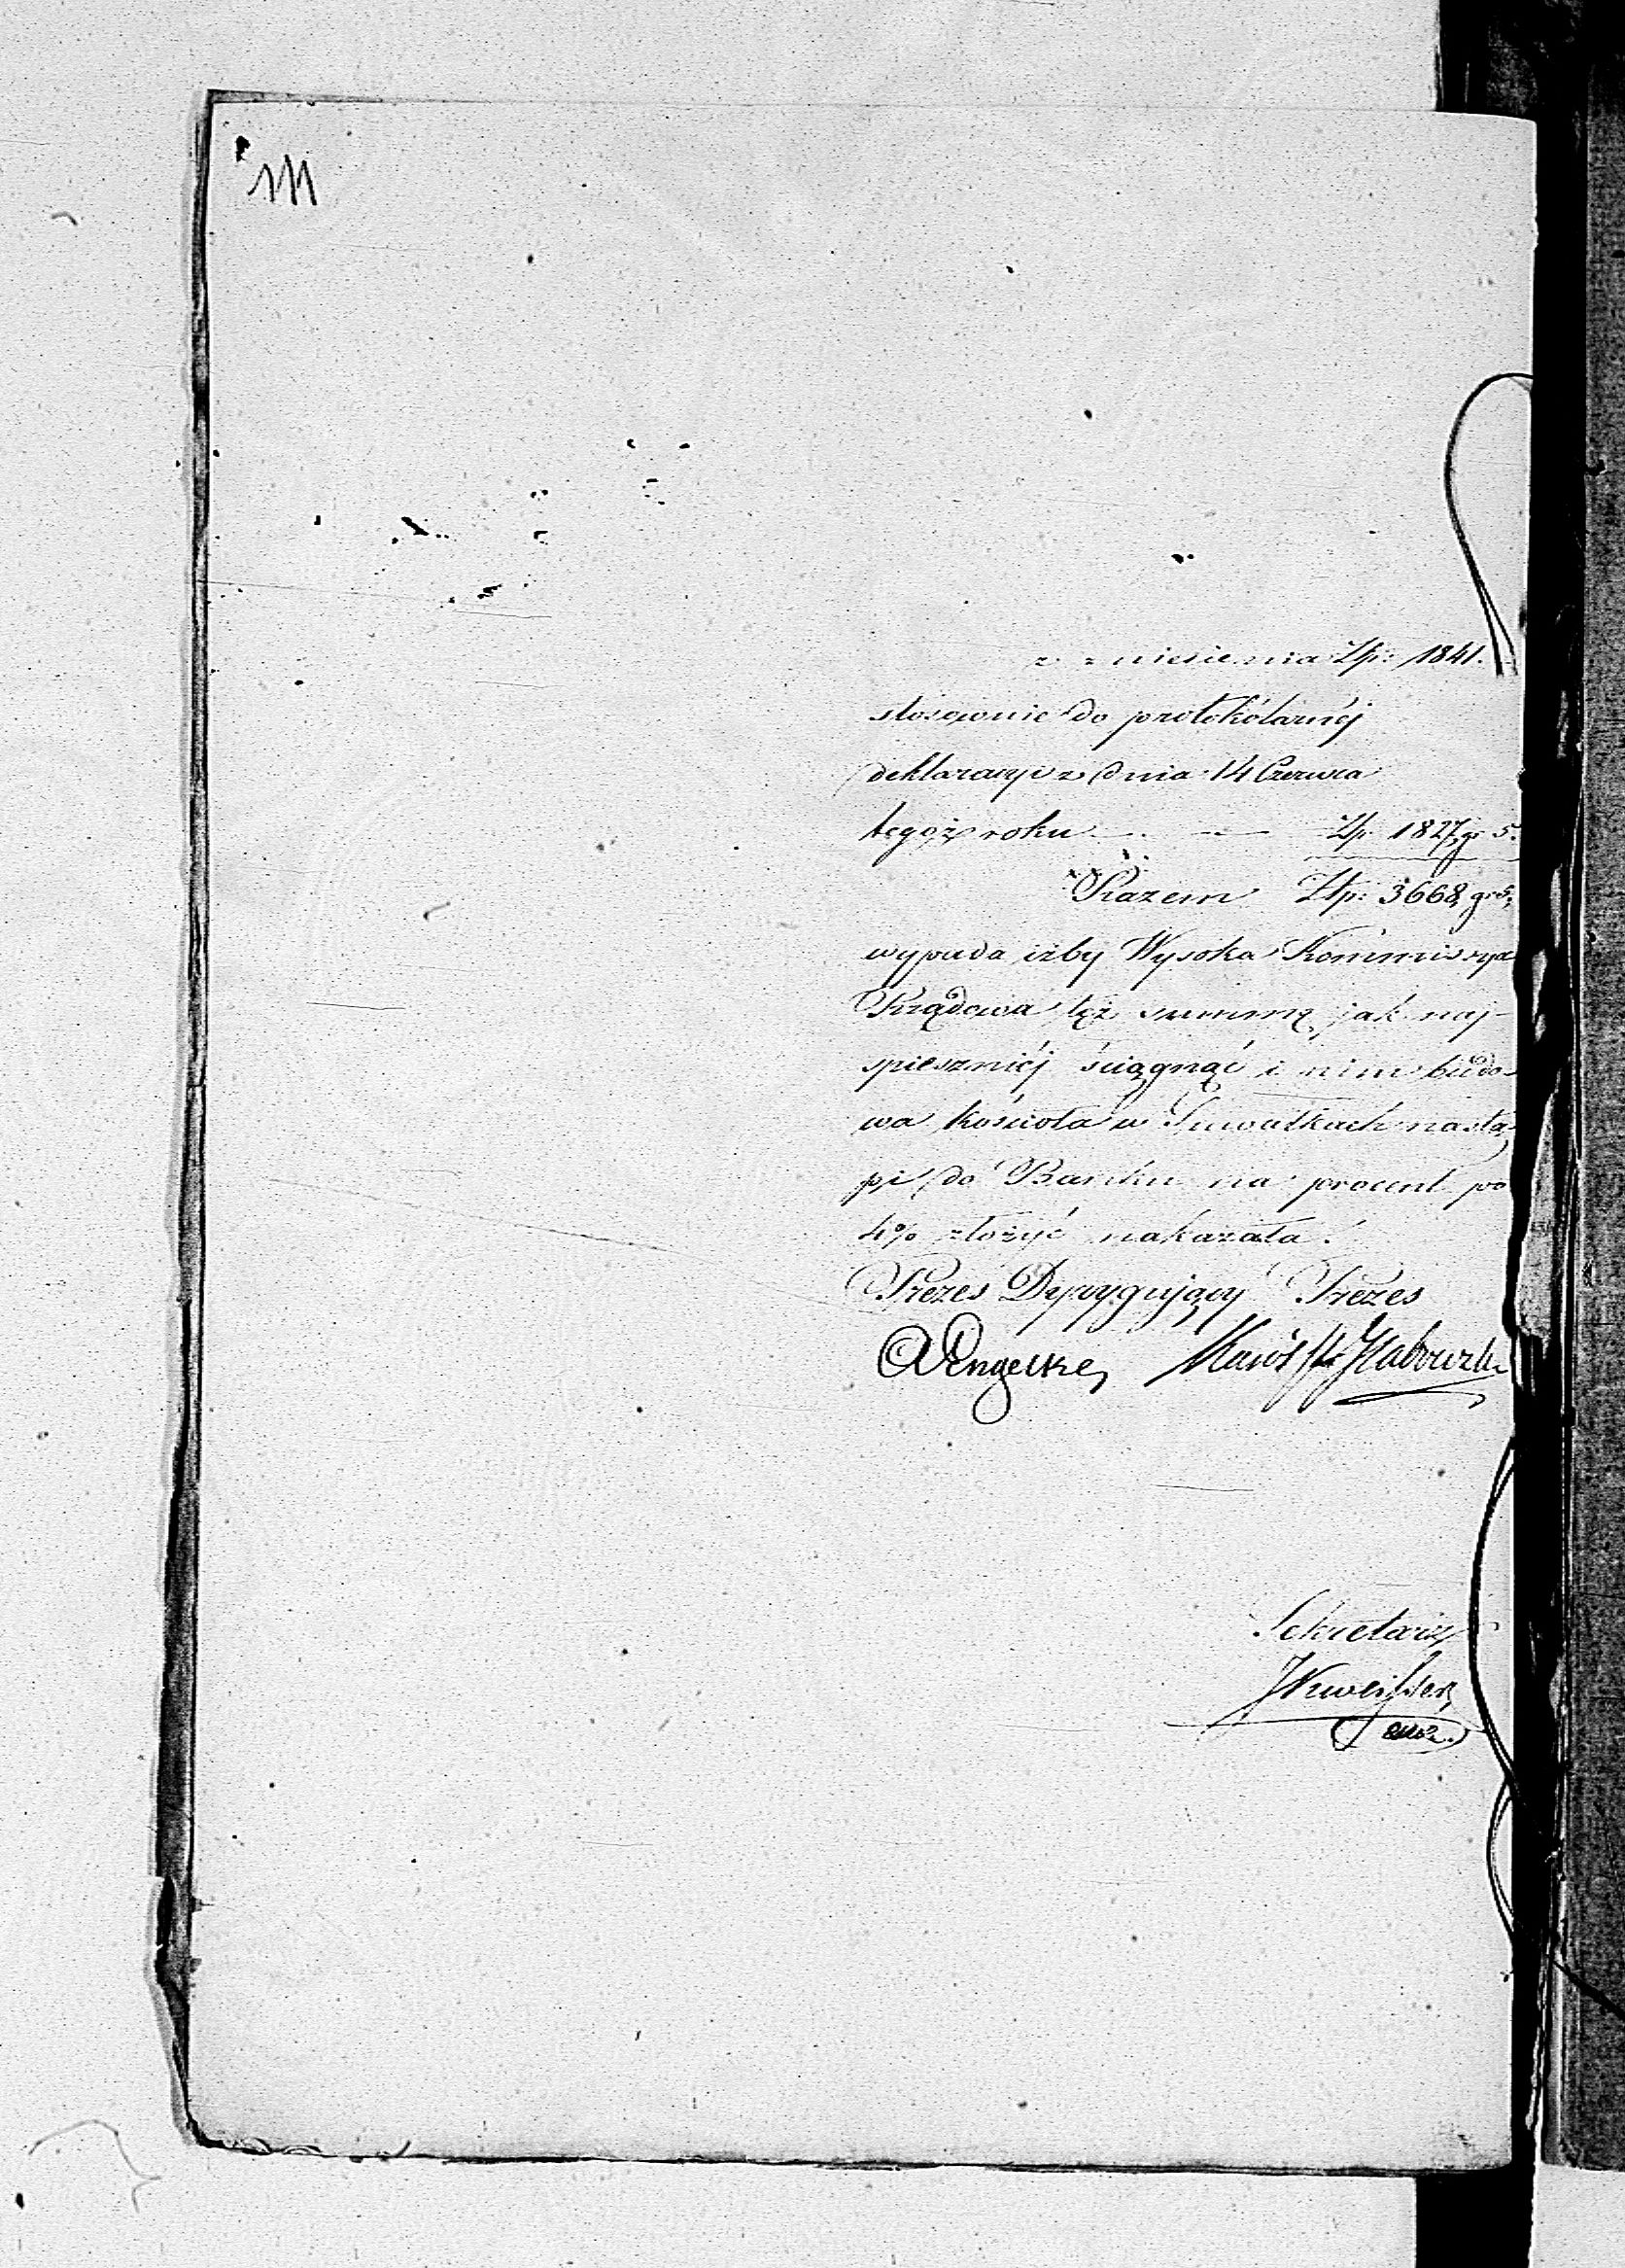 111
z zniesienia Złp: 1841.
stosownie do protokólarnéj
deklaracyi z dnia 14 Czerwca
tegoż roku Złp 1827, gr 5.
Razem Złp: 3668, gr 5,
wypada iżby Wysoka Kommissya
Rządowa tęż summę jak naj-
spieszniéj ściągnąć i nim budo-
wa kościoła w Suwałkach nastą-
pi do Banku na procent po
4% złożyć nakazała.
Prezes Dyrygujący Prezes
Engelke,
Sekretarz